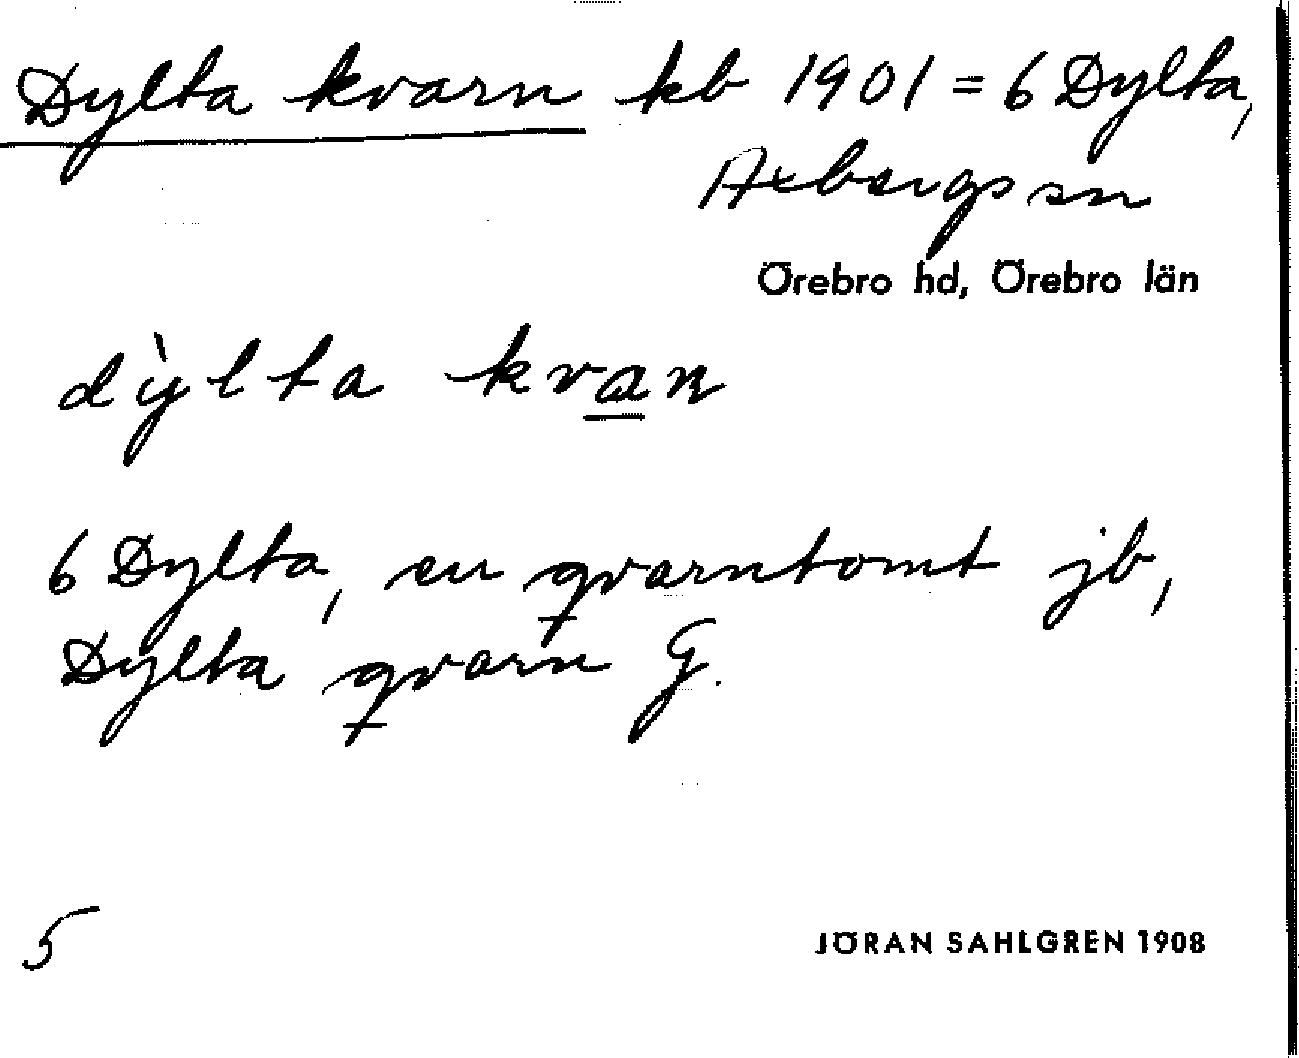 Dylta kvarn kb 1901 = 6 Dylta,
Axbergs sn
Örebro hd, Örebro län
dỳlta kvan
6 Dylta, en qvarntomt jb,
Dylta qvarn G.
5
JÖRAN SAHLGREN 1908